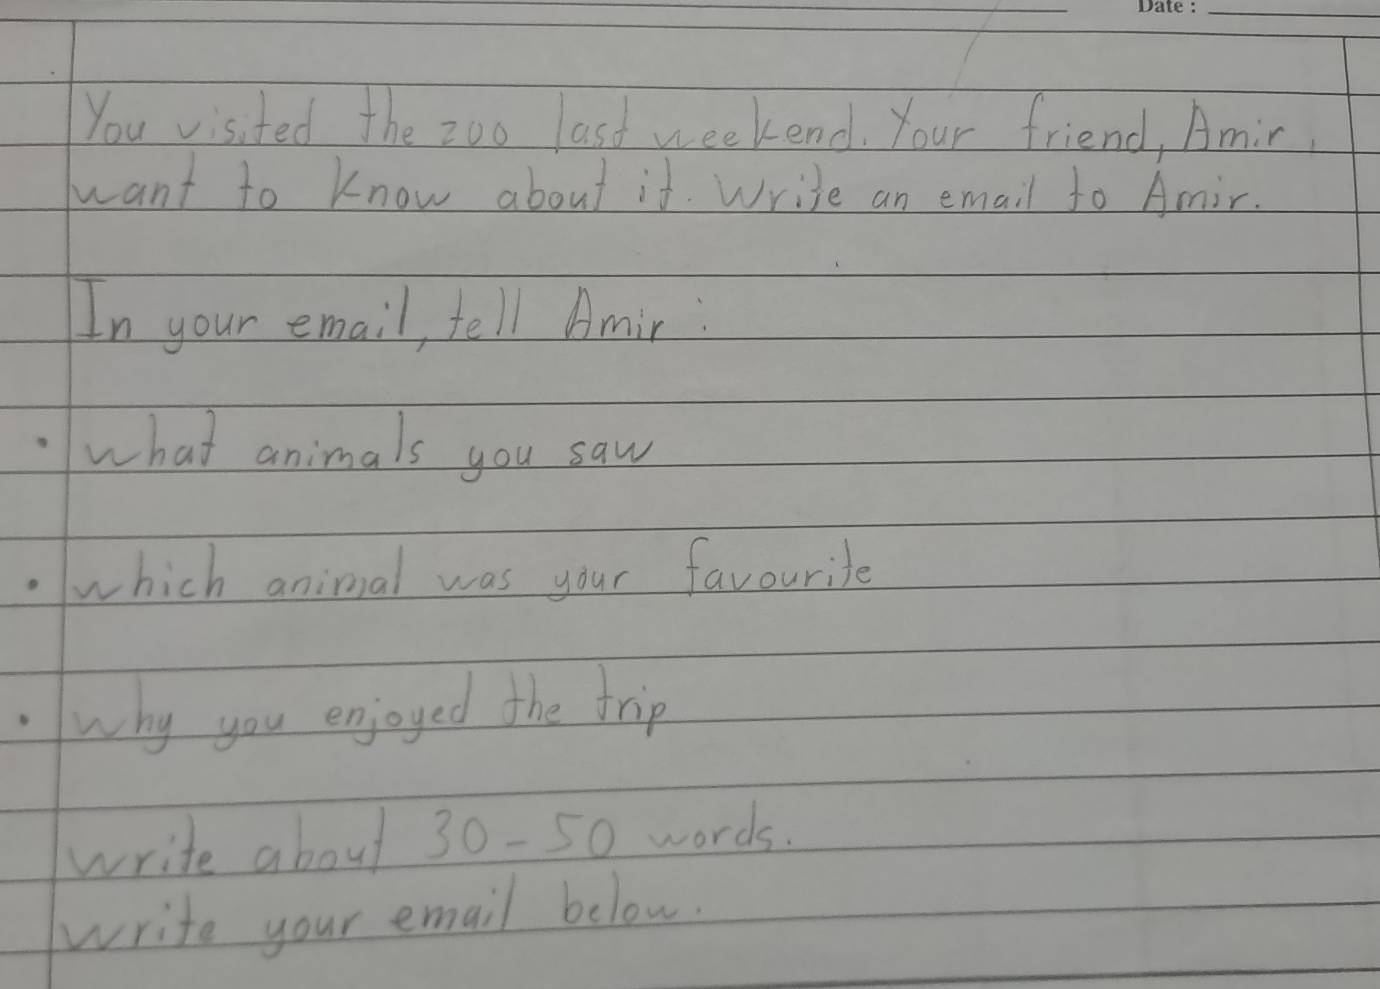 Date :
You visited the zoo last weekend. Your friend, Amir,
want to know about it. Write an email to Amir.
In your email, tell Amir :
• what animals you saw
• which animal was your favourite
• why you enjoyed the trip
write about 30 - 50 words.
write your email below.